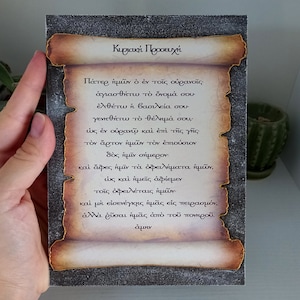 Κυριακή Προσευχή
Πάτερ ἡμῶν ὁ ἐν τοῖς οὐρανοῖς
ἁγιασθήτω τὸ ὄνομά σου
ἐλθέτω ἡ βασιλεία σου
γενεθήτω τὸ θέλημά σου,
ὡς ἐν οὐρανῷ καὶ ἐπὶ τῆς γῆς·
τὸν ἄρτον ἡμῶν τὸν ἐπιούσιον
δὸς ἡμῖν σήμερον·
καὶ ἄφες ἡμῖν τὰ ὀφειλήματα ἡμῶν,
ὡς καὶ ἡμεῖς ἀφίεμεν
τοῖς ὀφειλέταις ἡμῶν·
καὶ μὴ εἰσενέγκῃς ἡμᾶς εἰς πειρασμόν,
ἀλλὰ ῥῦσαι ἡμᾶς ἀπὸ τοῦ πονηροῦ
ἀμήν